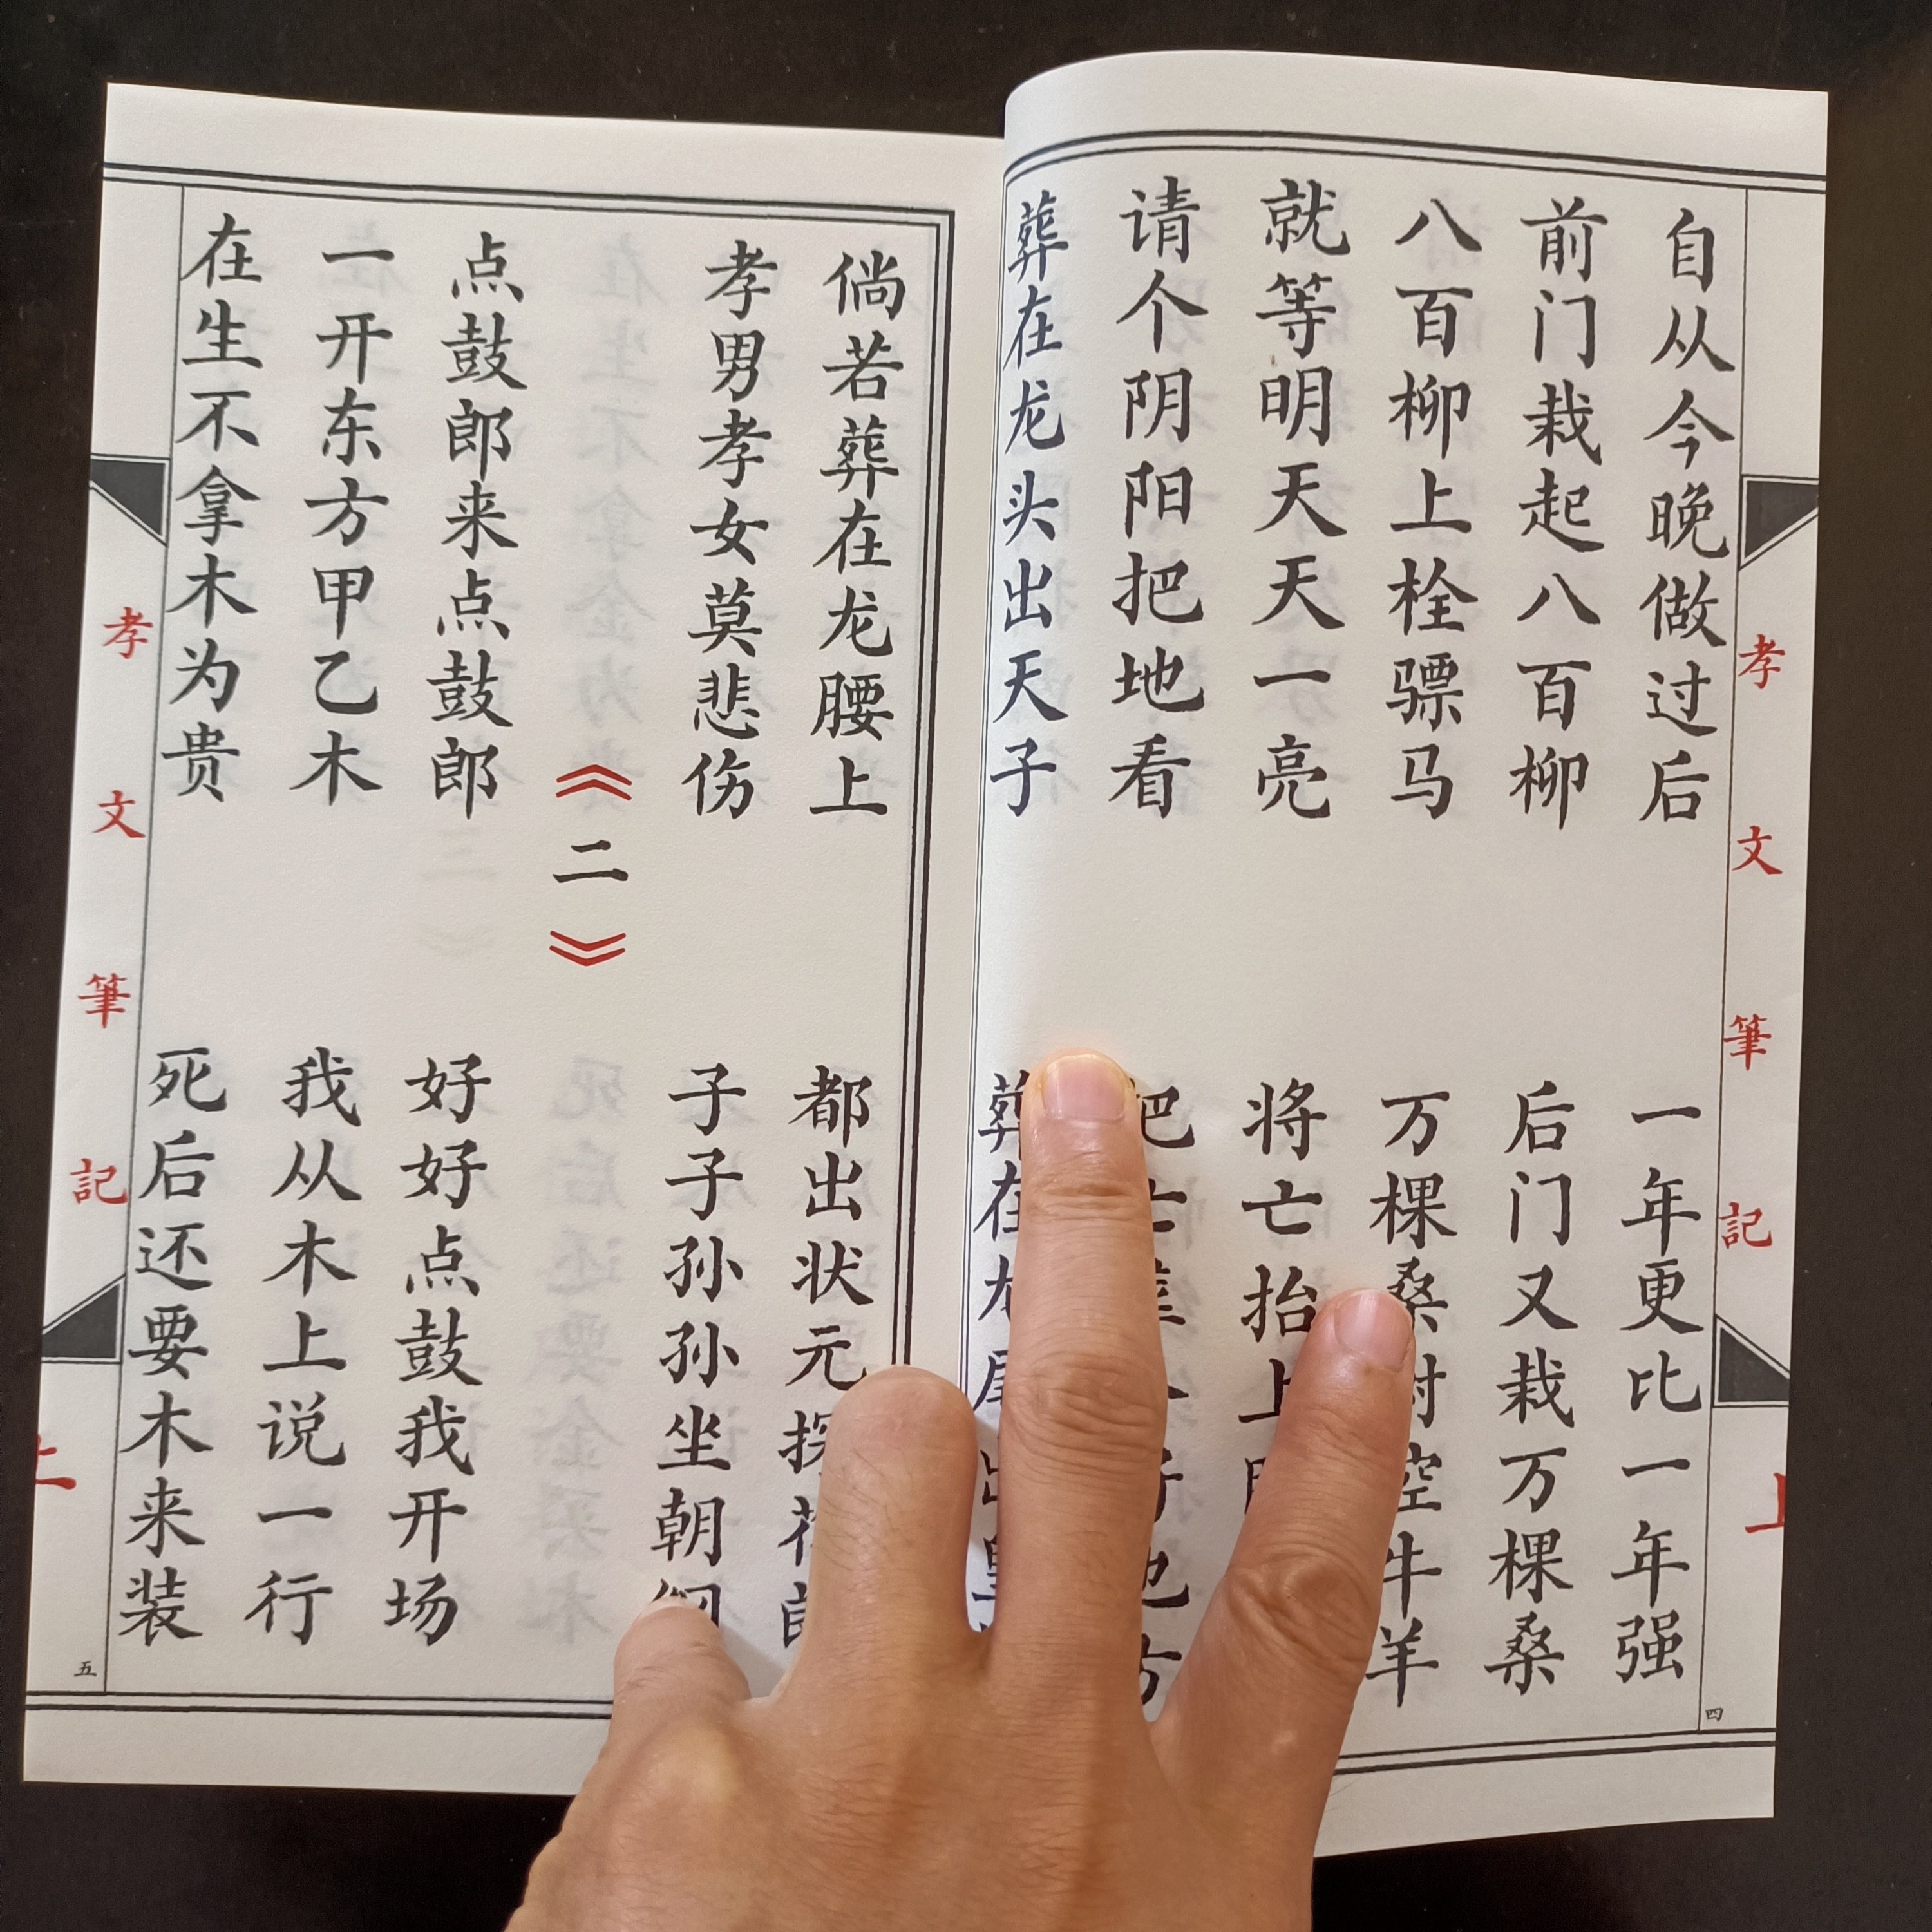 自从今晚做过后
一年更比一年强
前门栽起八百柳
后门又栽万棵桑
八百柳上栓骠马
万棵桑树空牛羊
就等明天天一亮
将亡抬上
请个阴阳把地看
把亡
地方
葬在龙头出天子
葬在龙尾出皇
倘若葬在龙腰上
都出状元探花郎
孝男孝女莫悲伤
子子孙孙坐朝纲
《二》
点鼓郎来点鼓郎
好好点鼓我开场
一开东方甲乙木
我从木上说一行
在生不拿木为贵
死后还要木来装
孝文筆記
上
四
孝文筆記
上
五